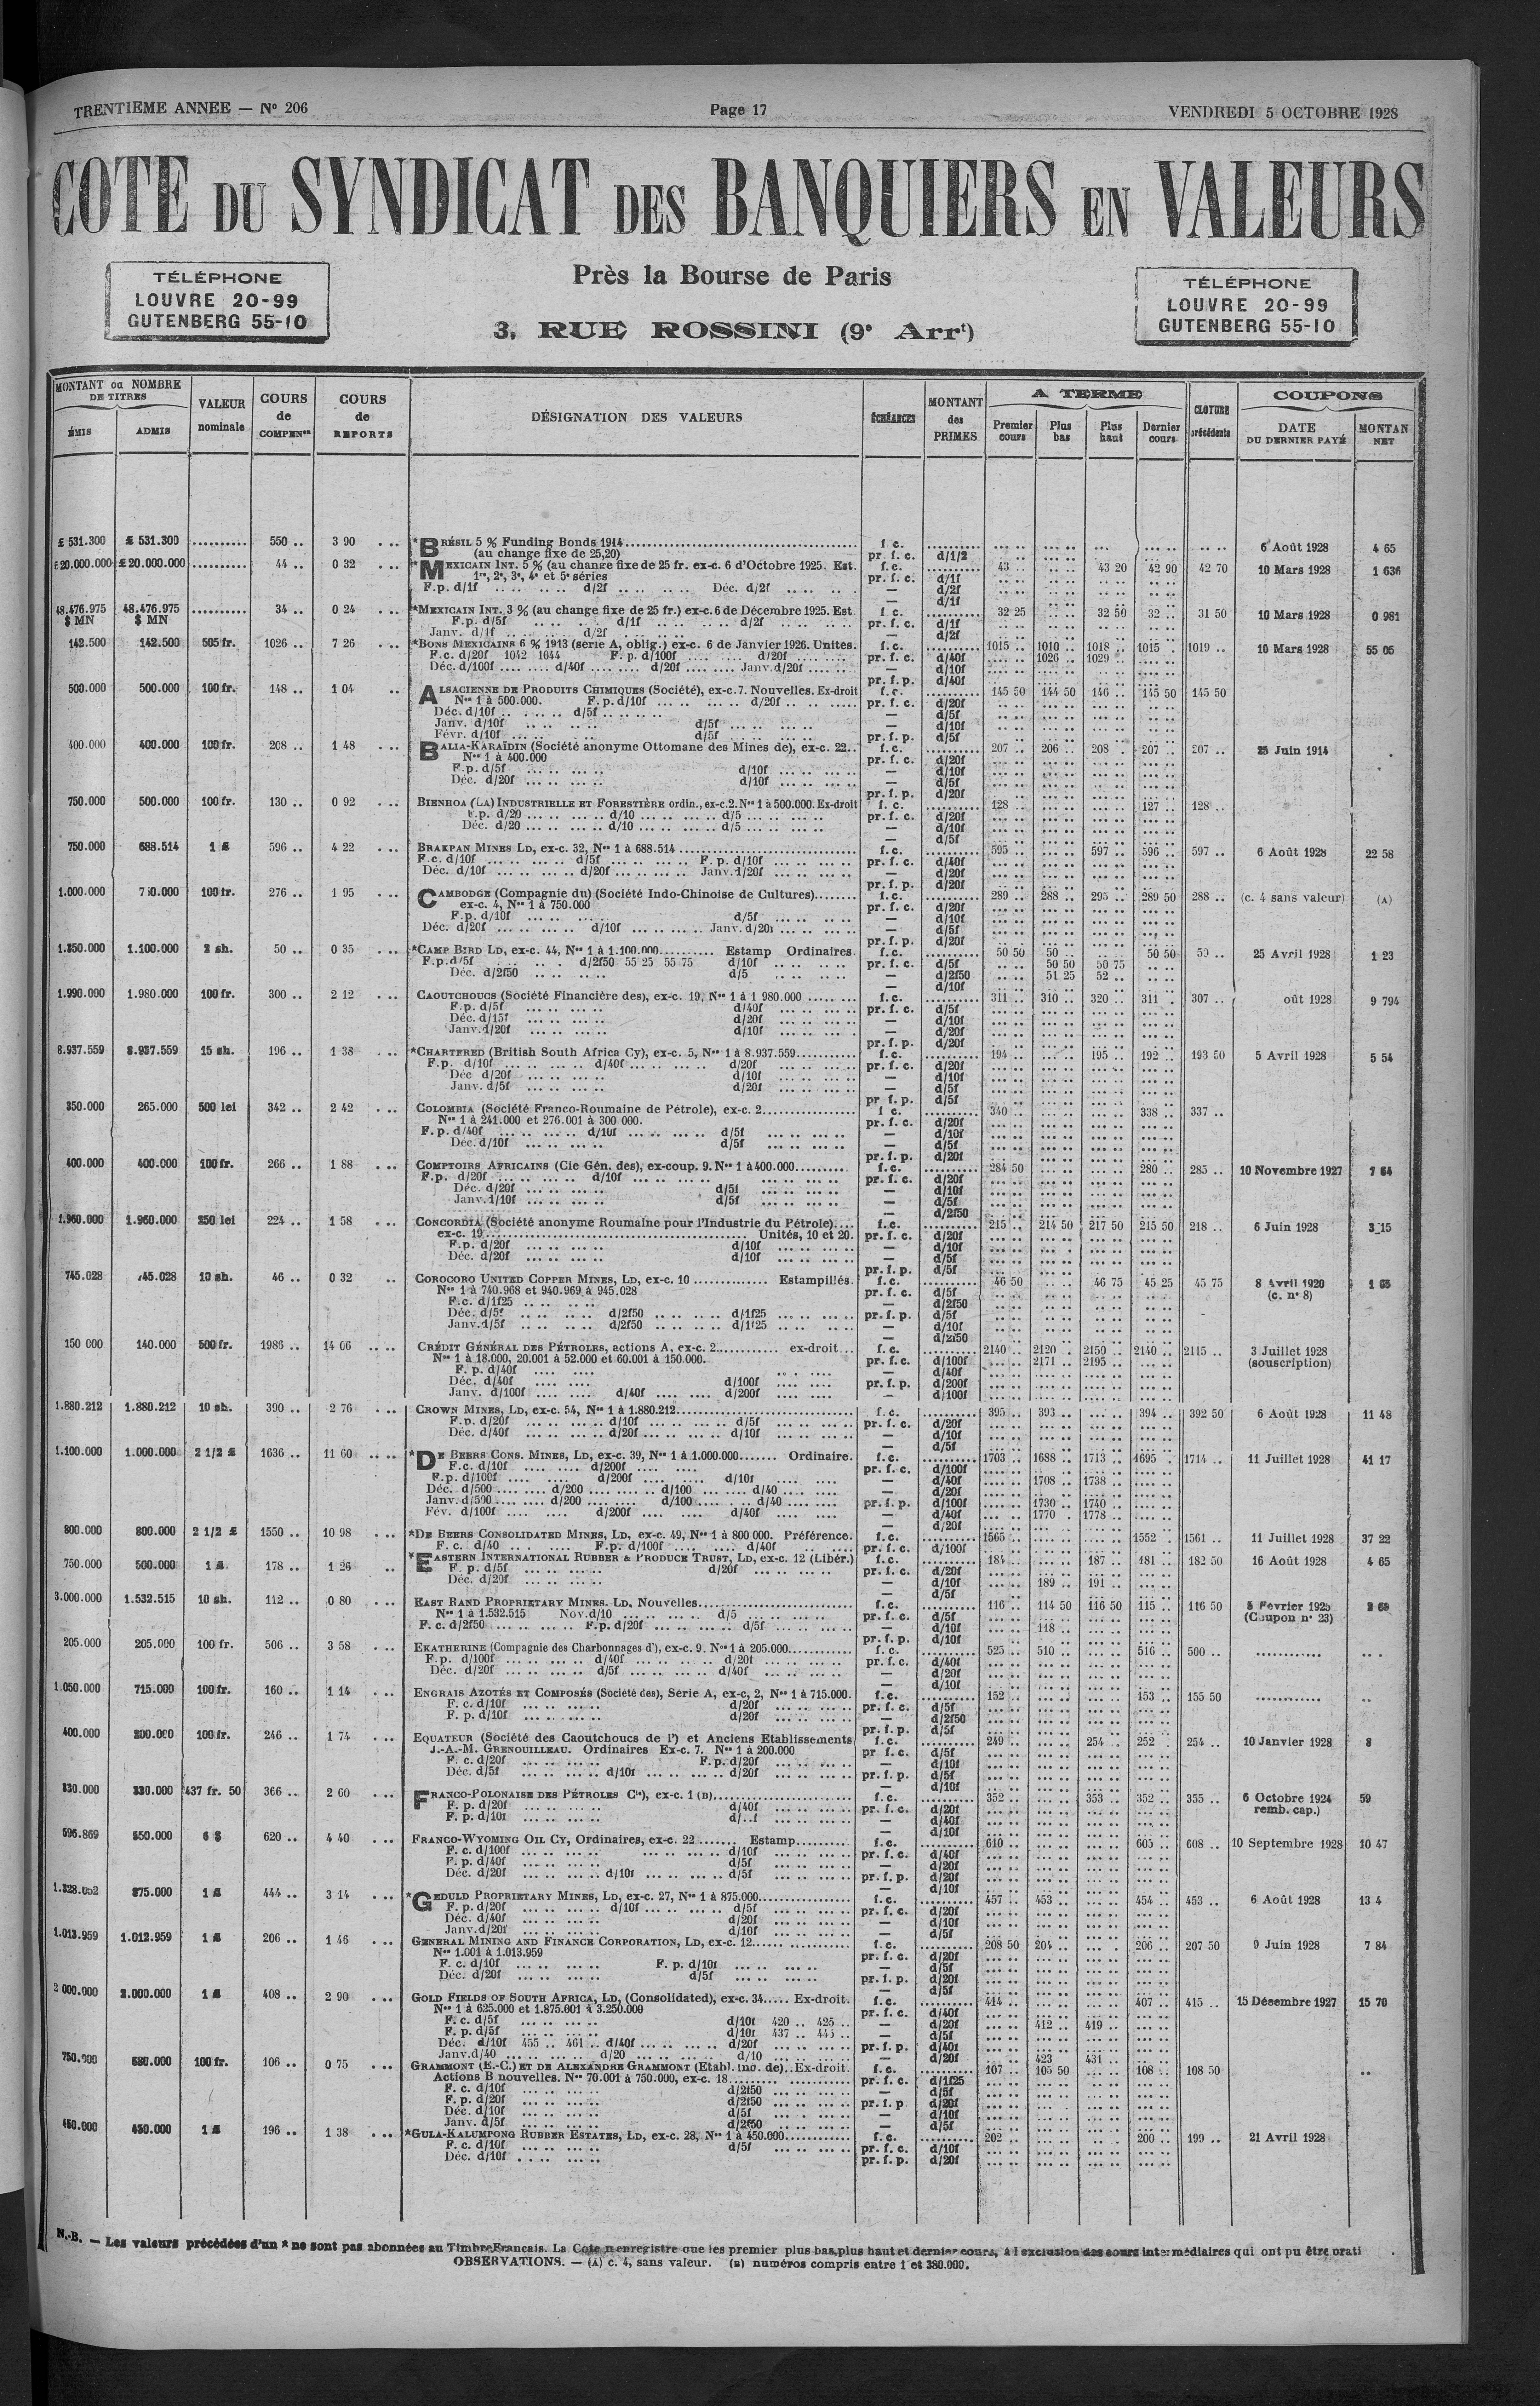 TRENTIEME ANNEE — Nº 206 Page 17 VENDREDI 5 OCTOBRE 1928
COTE DU SYNDICAT DES BANQUIERS EN VALEURS
Près la Bourse de Paris
3, RUE ROSSINI (9e Arrt)
TÉLÉPHONE
LOUVRE 20-99
GUTENBERG 55-10
TÉLÉPHONE
LOUVRE 20-99
GUTENBERG 55-10
MONTANT ou NOMBRE DE TITRES ÉMIS ADMIS VALEUR nominale COURS de COMPENon COURS de REPORTS DÉSIGNATION DES VALEURS ÉCHÉANCES MONTANT des PRIMES A TERME Premier cours Plus bas Plus haut Dernier cours CLOTURE précédente COUPONS DATE DU DERNIER PAYÉ MONTAN NET
£ 531.300 £ 531.300 .......... 550 .. 3 90 *BRÉSIL 5 % Funding Bonds 1914 f. c. 6 Août 1928 4 65
(au change fixe de 25,20) pr. f. c. d/1/2
£20.000.000 £20.000.000 .......... 44 .. 0 32 *MEXICAIN INT. 5 % (au change fixe de 25 fr. ex-c. 6 d'Octobre 1925. Est. f.c. 43 .. 43 20 42 90 42 70 10 Mars 1928 1 636
1re, 2e, 3e, 4e et 5e séries pr. f. c. d/1f
F.p. d/1f d/2f Déc. d/2f — d/2f
— d/1f
48.476.975 48.476.975 .......... 34 .. 0 24 *MEXICAIN INT. 3 % (au change fixe de 25 fr.) ex-c. 6 de Décembre 1925. Est. f. c. 32 25 32 50 32 .. 31 50 10 Mars 1928 0 981
$ MN $ MN F.p. d/5f d/1f d/2f pr. f. c. d/1f
Janv. d/1f d/2f — d/2f
142.500 142.500 505 fr. 1026 .. 7 26 *BONS MEXICAINS 6 % 1913 (série A, oblig.) ex-c. 6 de Janvier 1926. Unités. f. c. 1015 .. 1010 .. 1018 .. 1015 .. 1019 .. 16 Mars 1928 55 05
F.c. d/20f 1042 1044 F. p. d/100f d/20f pr. f. c. d/40f 1026 .. 1029
Déc. d/100f d/40f d/20f Janv. d/20f — d/10f
pr. f. p. d/40f
500.000 500.000 100 fr. 148 .. 1 04 ALSACIENNE DE PRODUITS CHIMIQUES (Société), ex-c. 7. Nouvelles. Ex-droit f. c. 145 50 144 50 146 .. 145 50 145 50
Nos 1 à 500.000. F. p. d/10f d/20f pr. f. c. d/20f
Déc. d/10f d/5f — d/5f
Janv. d/10f d/5f — d/10f
Févr. d/10f d/5f pr. f. p. d/5f
400.000 400.000 100 fr. 208 .. 1 48 BALIA-KARAÏDIN (Société anonyme Ottomane des Mines de), ex-c. 22.. f. c. 207 .. 206 .. 208 . 207 .. 207 .. 25 Juin 1914
Nos 1 à 400.000 pr. f. c. d/20f
F.p. d/5f d/10f — d/10f
Déc. d/20f d/10f — d/5f
pr. f. p. d/20f
750.000 500.000 100 fr. 130 .. 0 92 BIENHOA (LA) INDUSTRIELLE ET FORESTIÈRE ordin., ex-c.2. Nos 1 à 500.000. Ex-droit f. c. 128 127 .. 128 ..
F.p. d/20 d/10 d/5 pr. f. c. d/20f
Déc. d/20 d/10 d/5 — d/10f
— d/5f
750.000 688.514 1 £ 596 .. 4 22 BRAKPAN MINES LD, ex-c. 32, Nos 1 à 688.514 f. c. 595 597 .. 596 .. 597 .. 6 Août 1928 22 58
F.c. d/10f d/5f F. p. d/10f pr. f. c. d/40f
Déc. d/10f d/20f Janv. d/20f — d/20f
pr. f. p. d/20f
1.000.000 750.000 100 fr. 276 .. 1 95 CAMBODGE (Compagnie du) (Société Indo-Chinoise de Cultures) f. c. 289 .. 288 .. 295 .. 289 50 288 .. (c. 4 sans valeur) (A)
ex-c. 4, Nos 1 à 750.000 pr. f. c. d/20f
F.p. d/10f d/5f — d/10f
Déc. d/20f d/10f Janv. d/20f — d/5f
pr. f. p. d/20f
1.250.000 1.100.000 2 sh. 50 .. 0 35 *CAMP BIRD LD, ex-c. 44, Nos 1 à 1.100.000 Estamp Ordinaires. f. c. 50 50 50 .. 50 50 50 .. 25 Avril 1928 1 23
F.p. d/5f d/2f50 55 25 55 75 d/10f pr. f. c. d/5f 50 50 50 75
Déc. d/2f50 d/5 — d/2f50 51 25 52 ..
— d/10f
1.990.000 1.980.000 100 fr. 300 .. 2 12 CAOUTCHOUCS (Société Financière des), ex-c. 19, Nos 1 à 1 980.000 f. c. 311 .. 310 .. 320 .. 311 . 307 .. oût 1928 9 794
F.p. d/5f d/40f pr. f. c. d/5f
Déc. d/15f d/20f — d/10f
Janv. d/20f d/10f — d/20f
pr. f. p. d/20f
8.937.559 8.937.559 15 sh. 196 .. 1 38 *CHARTERED (British South Africa Cy), ex-c. 5, Nos 1 à 8.937.559 f. c. 194 195 .. 192 .. 193 50 5 Avril 1928 5 54
F.p. d/10f d/40f d/20f pr. f. c. d/20f
Déc d/20f d/10f — d/10f
Janv. d/5f d/20f — d/5f
pr f. p. d/5f
350.000 265.000 500 lei 342 .. 2 42 COLOMBIA (Société Franco-Roumaine de Pétrole), ex-c. 2 f c. 340 338 .. 337 ..
Nos 1 à 241.000 et 276.001 à 300 000. pr. f. c. d/20f
F.p. d/40f d/10f d/5f — d/10f
Déc. d/10f d/5f — d/5f
pr. f. p. d/20f
400.000 400.000 100 fr. 266 .. 1 88 COMPTOIRS AFRICAINS (Cie Gén. des), ex-coup. 9. Nos 1 à 400.000 f. c. 284 50 280 .. 285 .. 10 Novembre 1927 7 64
F.p. d/20f d/10f pr. f. c. d/20f
Déc. d/20f d/5f — d/10f
Janv. d/10f d/5f — d/5f
— d/2f50
1.960.000 1.960.000 250 lei 224 .. 1 58 CONCORDIA (Société anonyme Roumaine pour l'Industrie du Pétrole) f. c. 215 .. 214 50 217 50 215 50 218 .. 6 Juin 1928 3 15
ex-c. 19 Unités, 10 et 20. pr. f. c. d/20f
F.p. d/20f d/10f — d/10f
Déc. d/20f d/10f — d/5f
pr. f. p. d/5f
745.028 745.028 10 sh. 46 .. 0 32 COROCORO UNITED COPPER MINES, LD, ex-c. 10 Estampillés. f. c. 46 50 46 75 45 25 45 75 8 Avril 1920 1 65
Nos 1 à 740.968 et 940.969 à 945.028 pr. f. c. d/5f (c. nº 8)
F.c. d/1f25 — d/2f50
Déc. d/5f d/2f50 d/1f25 pr. f. p. d/5f
Janv. d/5f d/2f50 d/1f25 — d/10f
— d/2f50
150 000 140.000 500 fr. 1986 .. 14 06 CRÉDIT GÉNÉRAL DES PÉTROLES, actions A, ex-c. 2 ex-droit f. c. 2140 .. 2120 .. 2150 .. 2140 .. 2115 .. 3 Juillet 1928
Nos 1 à 18.000, 20.001 à 52.000 et 60.001 à 150.000. pr. f. c. d/100f 2171 .. 2195 .. (souscription)
F. p. d/40f — d/40f
Déc. d/40f d/100f pr. f. p. d/200f
Janv. d/100f d/40f d/200f — d/100f
1.880.212 1.880.212 10 sh. 390 .. 2 76 CROWN MINES, LD, ex-c. 54, Nos 1 à 1.880.212 f. c. 395 .. 393 .. 394 .. 392 50 6 Août 1928 11 48
F.p. d/20f d/10f d/5f pr. f. c. d/20f
Déc. d/40f d/20f d/10f — d/10f
— d/5f
1.100.000 1.000.000 2 1/2 £ 1636 .. 11 60 *DE BEERS CONS. MINES, LD, ex-c. 39, Nos 1 à 1.000.000 Ordinaire. f. c. 1703 .. 1688 .. 1713 .. 1695 . 1714 .. 11 Juillet 1928 41 17
F.c. d/10f d/200f pr. f. c. d/100f
F.p. d/100f d/200f d/10f — d/40f 1708 .. 1738 ..
Déc. d/500 d/200 d/100 d/40 — d/20f
Janv. d/500 d/200 d/100 d/40 pr. f. p. d/100f 1730 .. 1740 ..
Fév. d/100f d/200f d/40f — d/40f 1770 . 1778 ..
— d/20f
800.000 800.000 2 1/2 £ 1550 .. 10 98 *DE BEERS CONSOLIDATED MINES, LD, ex-c. 49, Nos 1 à 800 000. Préférence. f. c. 1565 1552 . 1561 .. 11 Juillet 1928 37 22
F. c. d/40 F.p. d/100f d/40f pr. f. c. d/100f
750.000 500.000 1 £ 178 .. 1 26 *EASTERN INTERNATIONAL RUBBER & PRODUCE TRUST, LD, ex-c. 12 (Libér.) f. c. 184 187 .. 181 .. 182 50 16 Août 1928 4 65
F. p. d/5f d/20f pr. f. c. d/20f
Déc. d/20f — d/10f 189 .. 191 ..
— d/5f
3.000.000 1.532.515 10 sh. 112 .. 0 80 EAST RAND PROPRIETARY MINES. LD, Nouvelles f. c. 116 .. 114 50 116 50 115 .. 116 50 5 Février 1925 2 60
Nos 1 à 1.532.515 Nov. d/10 d/5 pr. f. c. d/5f (Coupon nº 23)
F. c. d/2f50 F.p. d/20f d/5f — d/10f 118 ..
pr. f. p. d/10f
205.000 205.000 100 fr. 506 .. 3 58 EKATHERINE (Compagnie des Charbonnages d'), ex-c. 9. Nos 1 à 205.000 f. c. 525 .. 510 .. 516 .. 500 ..
F.p. d/100f d/40f d/20f pr. f. c. d/40f
Déc. d/20f d/5f d/40f — d/20f
— d/10f
1.050.000 715.000 100 fr. 160 .. 1 14 ENGRAIS AZOTÉS ET COMPOSÉS (Société des), Série A, ex-c, 2, Nos 1 à 715.000. f. c. 152 153 .. 155 50
F. c. d/10f d/20f pr. f. c. d/5f
F. p. d/10f d/20f — d/2f50
pr. f. p. d/5f
400.000 200.000 100 fr. 246 .. 1 74 EQUATEUR (Société des Caoutchoucs de l') et Anciens Etablissements f. c. 249 254 .. 252 . 254 .. 10 Janvier 1928 8
J.-A.-M. GRENOUILLEAU. Ordinaires Ex-c. 7. Nos 1 à 200.000 pr f. c. d/5f
F. c. d/20f F. p. d/20f — d/10f
Déc. d/5f d/10f d/20f pr. f. p. d/5f
— d/10f
330.000 330.000 437 fr. 50 366 .. 2 60 FRANCO-POLONAISE DES PÉTROLES Cie), ex-c. 1 (B) f. c. 352 353 .. 352 .. 355 .. 6 Octobre 1924 59
F. p. d/20f d/40f pr. f. c. d/20f remb. cap.)
F. p. d/10f — d/40f
— d/10f
596.869 550.000 6 $ 620 .. 4 40 FRANCO-WYOMING OIL CY, Ordinaires, ex-c. 22 Estamp f. c. 610 605 .. 608 .. 10 Septembre 1928 10 47
F. c. d/100f d/10f pr. f. c. d/40f
F. p. d/40f d/5f — d/20f
Déc. d/20f d/10f d/5f pr. f. p. d/20f
— d/10f
1.328.052 875.000 1 £ 444 .. 3 14 *GEDULD PROPRIETARY MINES, LD, ex-c. 27, Nos 1 à 875.000 f. c. 457 .. 453 .. 454 .. 453 .. 6 Août 1928 13 4
F. p. d/20f d/10f d/5f pr. f. c. d/20f
Déc. d/40f d/20f — d/10f
Janv. d/20f d/10f — d/5f
1.013.959 1.012.959 1 £ 206 .. 1 46 GENERAL MINING AND FINANCE CORPORATION, LD, ex-c. 12 f. c. 208 50 204 .. 206 .. 207 50 9 Juin 1928 7 84
Nos 1.001 à 1.013.959 pr. f. c. d/20f
F. c. d/10f F. p. d/10f — d/5f
Déc. d/20f d/5f pr. f. p. d/20f
— d/5f
2 000.000 2.000.000 1 £ 408 .. 2 90 GOLD FIELDS OF SOUTH AFRICA, LD, (Consolidated), ex-c. 34 Ex-droit. f. c. 414 407 .. 415 .. 15 Désembre 1927 15 70
Nos 1 à 625.000 et 1.875.001 à 3.250.000 pr. f. c. d/40f
F. c. d/5f d/10f 420 .. 425 .. — d/20f 412 .. 419 ..
F. p. d/5f d/10f 437 .. 445 .. — d/5f
Déc. d/10f 455 .. 461 .. d/40f d/20f pr. f. p. d/40f
Janv. d/40 d/20 d/10 — d/20f 423 431 ..
750.000 680.000 100 fr. 106 .. 0 75 GRAMMONT (E.-C.) ET DE ALEXANDRE GRAMMONT (Etabl. ind. de).. Ex-droit. f. c. 107 .. 105 50 108 .. 108 50
Actions B nouvelles. Nos 70.001 à 750.000, ex-c. 18 pr. f. c. d/1f25
F. c. d/10f d/2f50 — d/5f
F. p. d/20f d/2f50 pr. f. p d/20f
Déc. d/10f d/5f — d/10f
Janv. d/5f d/2f50 — d/5f
450.000 450.000 1 £ 196 .. 1 38 *GULA-KALUMPONG RUBBER ESTATES, LD, ex-c. 28, Nos 1 à 450.000 f. c. 202 200 .. 199 .. 21 Avril 1928
F. c. d/10f d/5f pr. f. c. d/10f
Déc. d/10f pr. f. p. d/20f
N.-B. — Les valeurs précédées d'un * ne sont pas abonnées au Timbre Français. La Cote n enregistre que les premier plus bas, plus haut et dernier cours, à l exclusion des cours intermédiaires qui ont pu être prati
OBSERVATIONS. — (A) c. 4, sans valeur. (B) numéros compris entre 1 et 380.000.